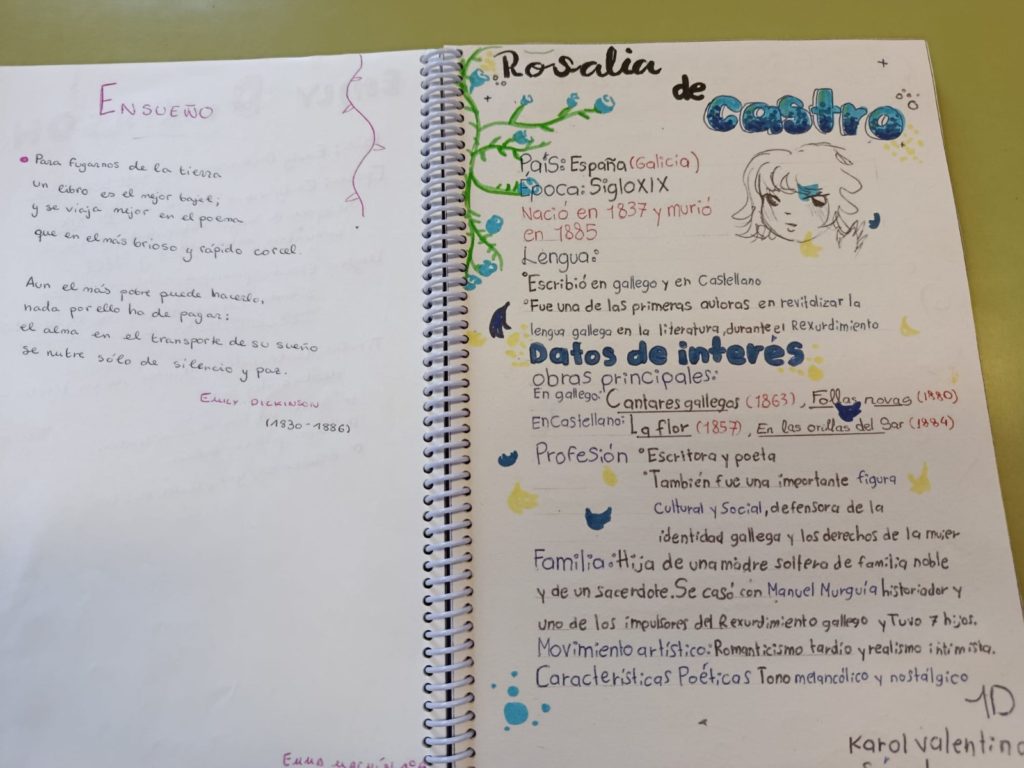 ENSUEÑO
Para fugarnos de la tierra
un libro es el mejor bajel;
y se viaja mejor en el poema
que en el más brioso y rápido corcel.
Aun el más pobre puede hacerlo,
nada por ello ha de pagar:
el alma en el transporte de su sueño
se nutre sólo de silencio y paz.
EMILY DICKINSON
(1830-1886)
Rosalia
de
castro
País: España (Galicia)
Época: Siglo XIX
Nació en 1837 y murió
en 1885
Lengua:
Escribió en gallego y en Castellano
Fue una de las primeras autoras en revitalizar la
lengua gallega en la literatura, durante el Rexurdimiento
Datos de interés
obras principales:
En gallego: Cantares gallegos (1863), Follas novas (1880)
En Castellano: La flor (1857), En las orillas del Sar (1884)
Profesión Escritora y poeta
También fue una importante figura
Cultural y Social, defensora de la
identidad gallega y los derechos de la mujer
Familia: Hija de una madre soltera de familia noble
y de un sacerdote. Se casó con Manuel Murguía historiador y
uno de los impulsores del Rexurdimiento gallego y Tuvo 7 hijos.
Movimiento artístico: Romanticismo tardío y realismo intimista.
Características Poéticas Tono melancólico y nostálgico
1D
Karol Valentina